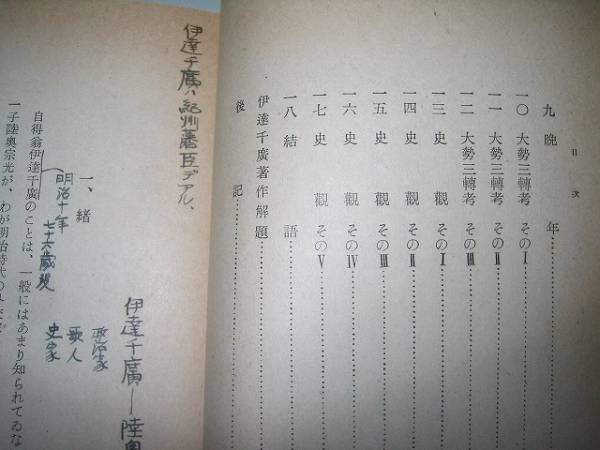 目次
九 晩年
一〇 大勢三轉考 その Ⅰ
一一 大勢三轉考 その Ⅱ
一二 大勢三轉考 その Ⅲ
一三 史觀 その Ⅰ
一四 史觀 その Ⅱ
一五 史觀 その Ⅲ
一六 史觀 その Ⅳ
一七 史觀 その Ⅴ
一八 結語
伊達千廣著作解題
後記
伊達千廣ハ紀州藩臣デアル、
伊達千廣—陸奥
政治家
歌人
史家
一、緒
明治十年
七十六歳歿
自得翁伊達千廣のことは、一般にはあまり知られてゐな
一子陸奥宗光が、わが明治時代の